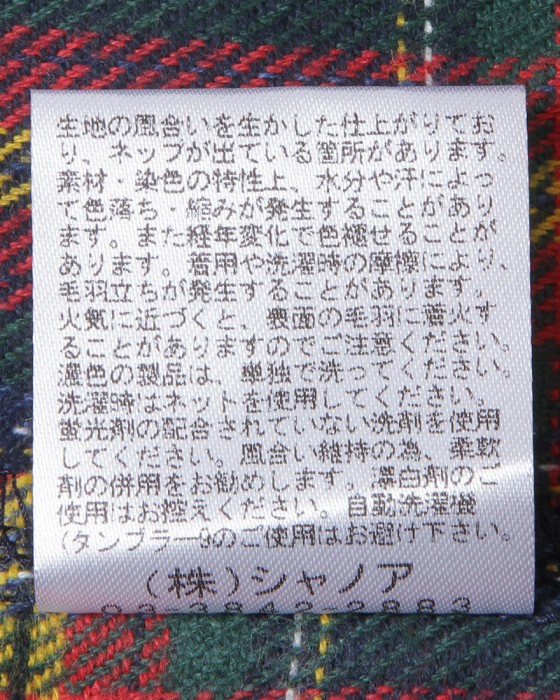 生地の風合いを生かした仕上がりてお
り、ネップが出ている箇所があります。
素材・染色の特性上、水分や汗によっ
て色落ち・縮みが発生することがあり
ます。また経年変化で色褪せることが
あります。着用や洗濯時の摩擦により、
毛羽立ちが発生することがあります。
火気に近づくと、表面の毛羽に着火す
ることがありますのでご注意ください。
濃色の製品は、単独で洗ってください。
洗濯時はネットを使用してください。
蛍光剤の配合されていない洗剤を使用
してください。風合い維持の為、柔軟
剤の併用をお勧めします。漂白剤のご
使用はお控えください。自動洗濯機
(タンブラー)のご使用はお避け下さい。
(株)シャノア
03-3842-2883